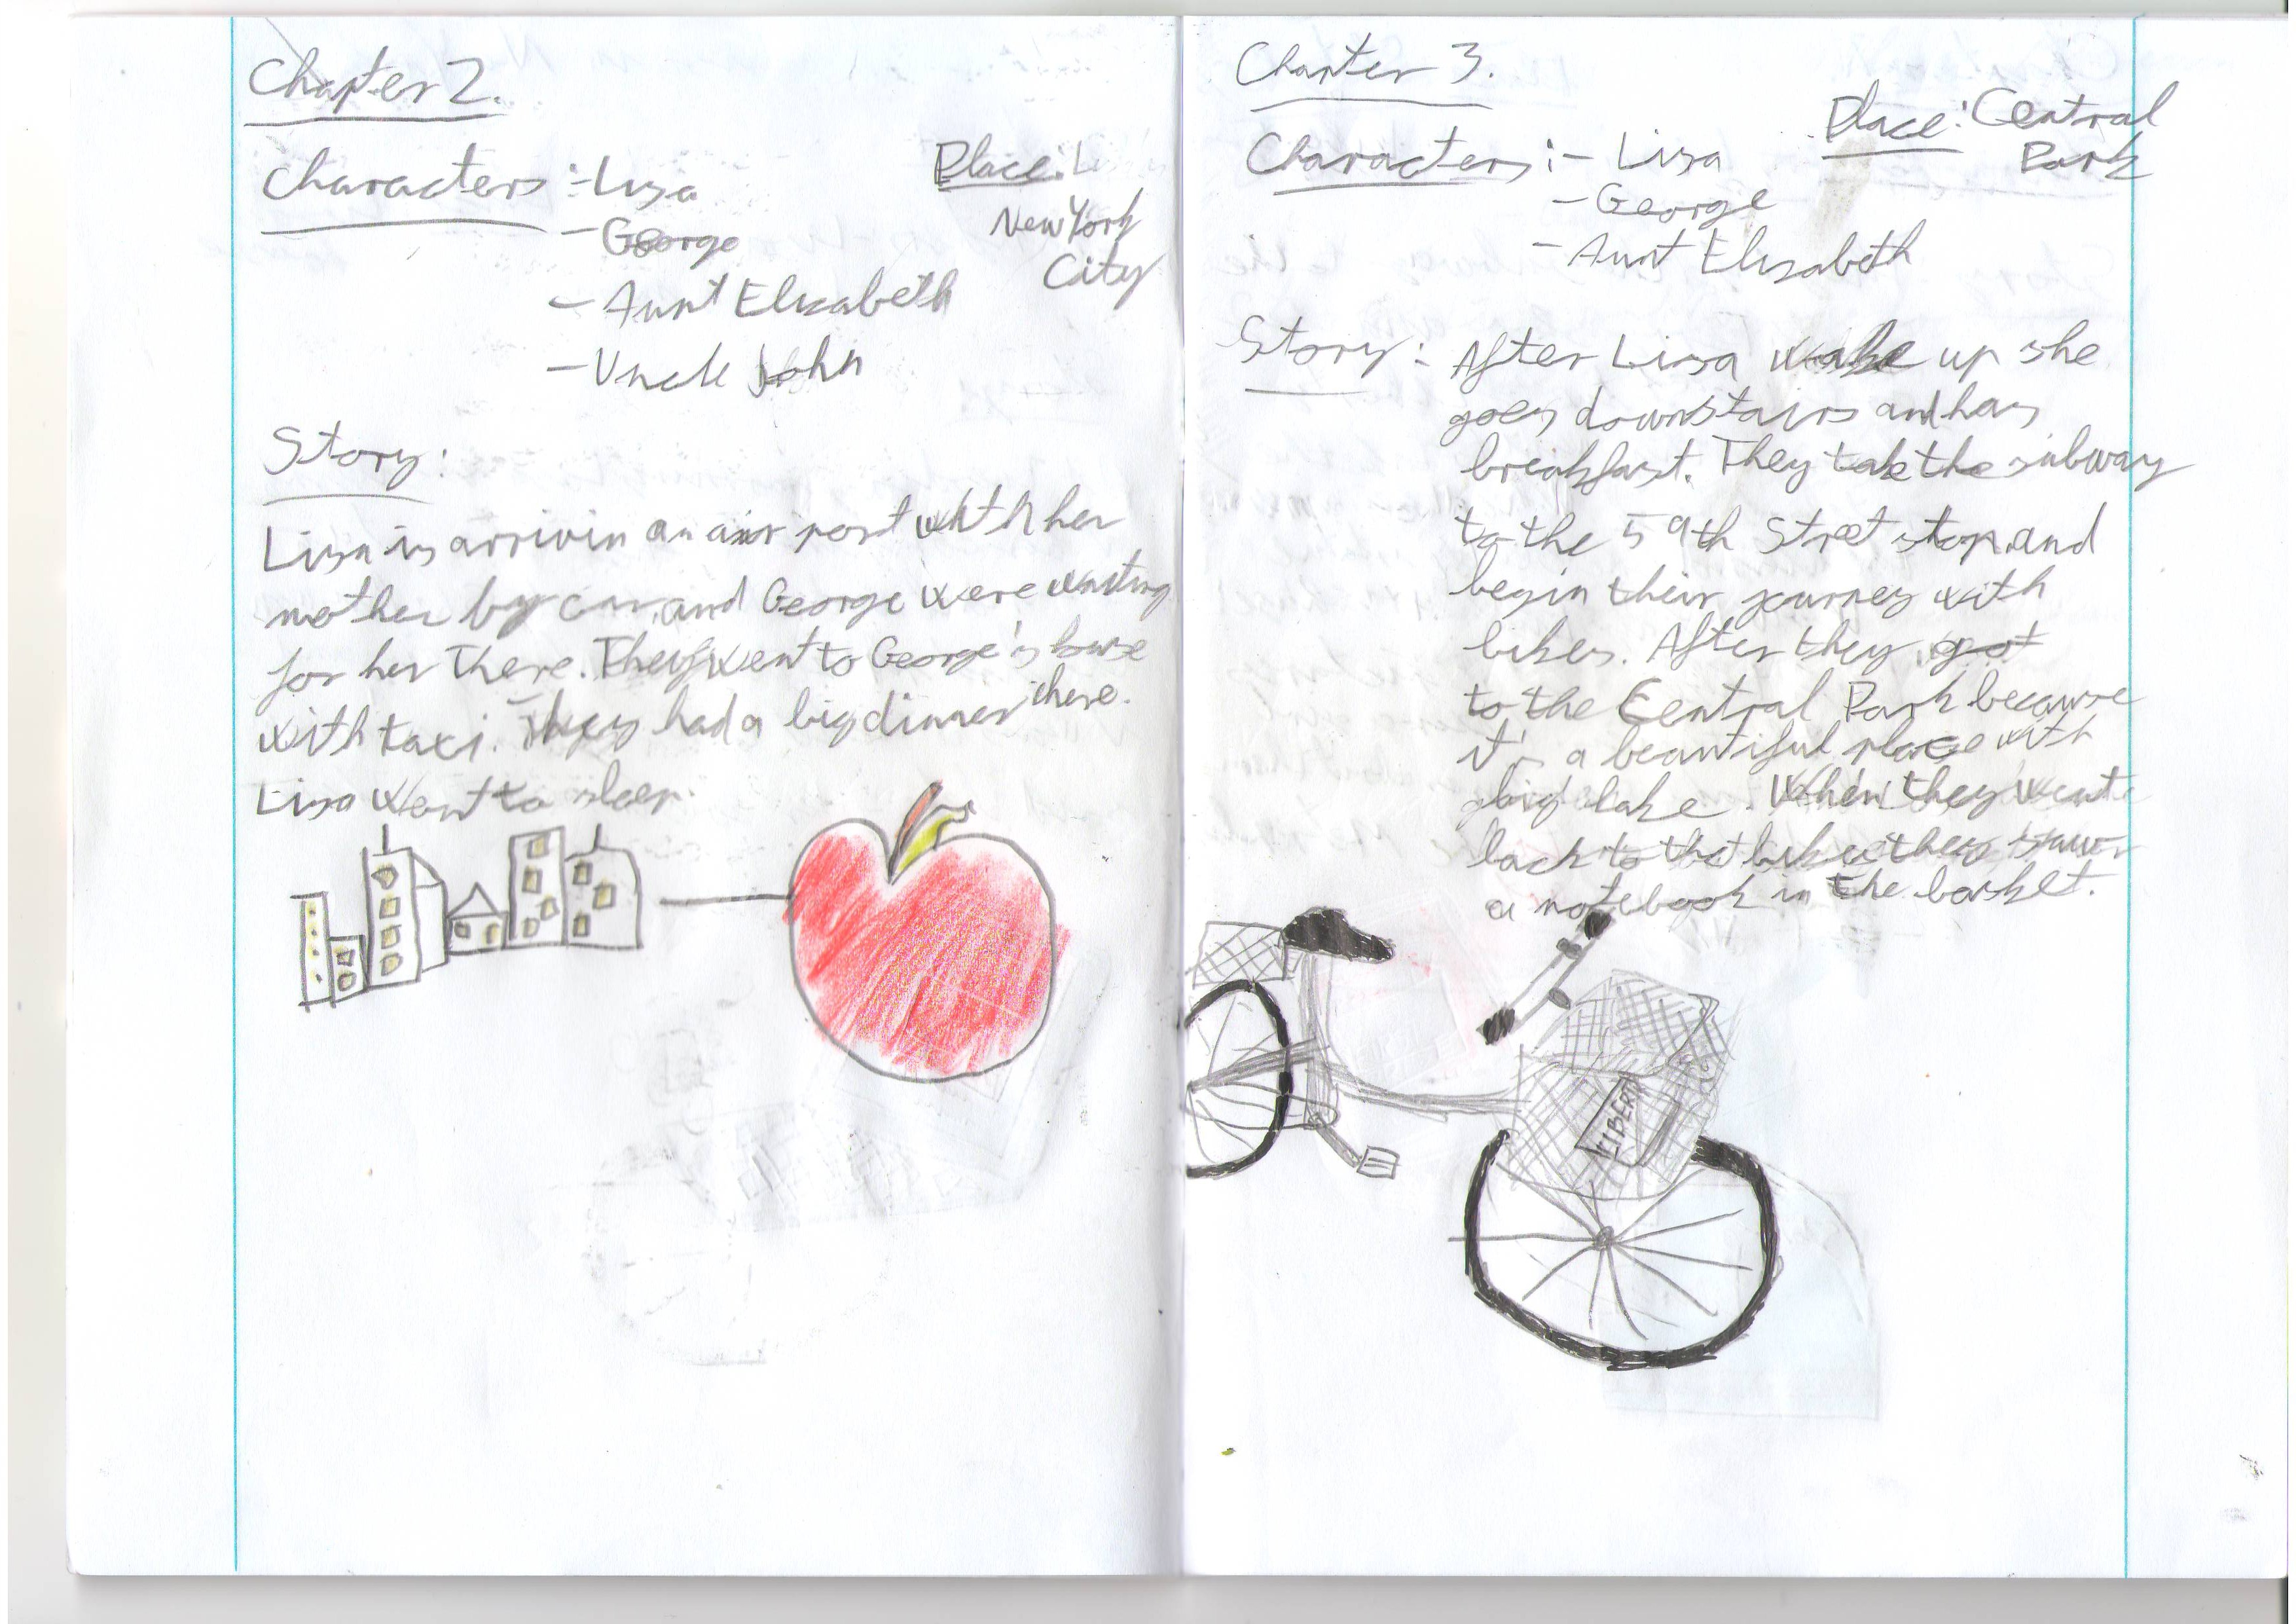 Chapter 2.
Characters :- Lisa
- George
- Aunt Elizabeth
- Uncle John
Place: L
New York
City
Story:
Lisa is arrivin an air port with her
mother by car, and George were waiting
for her there. They went to George's house
with taxi. They had a big dinner there.
Lisa went to sleep.
Chapter 3.
Characters :- Lisa
- George
- Aunt Elizabeth
Place: Central
Park
Story: After Lisa wake up she
goes downstairs and has
breakfast. They take the subway
to the 59th Street stop and
begin their journey with
bikes. After they got
to the Central Park because
it's a beautiful place with
big lake. When they went
back to the bikes they saw
a notebook in the basket.
LIBERT